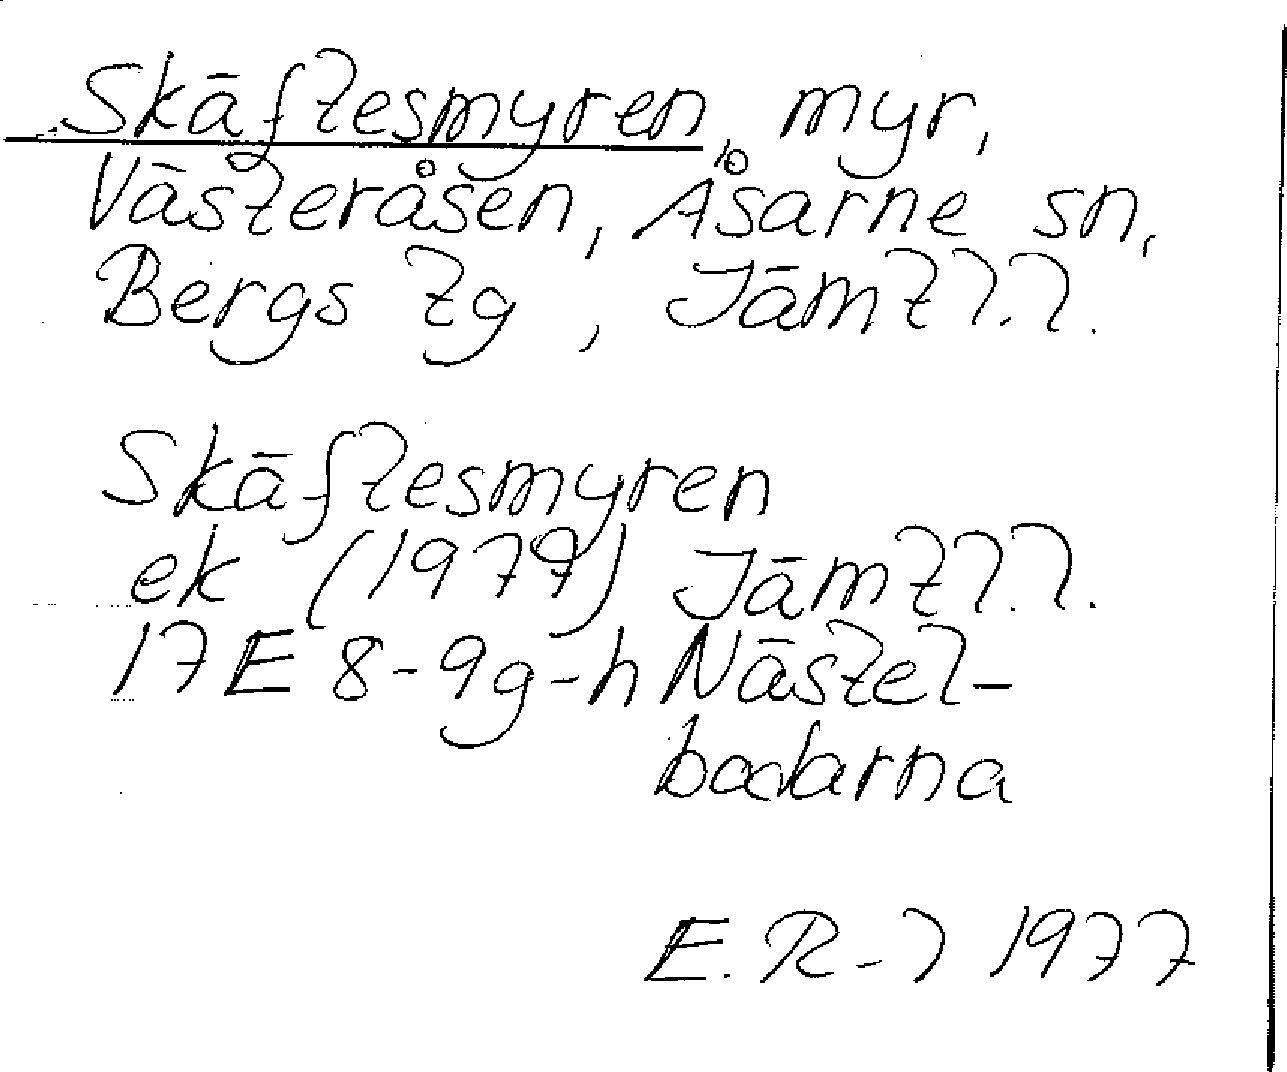 Skäftesmyren, myr,
Västeråsen, Åsarne sn,
Bergs tg, Jämtl. l.
Skäftesmyren
ek (1977) Jämtl. l.
17E 8-9g-h Nästel-
bodarna
E. R-l 1977